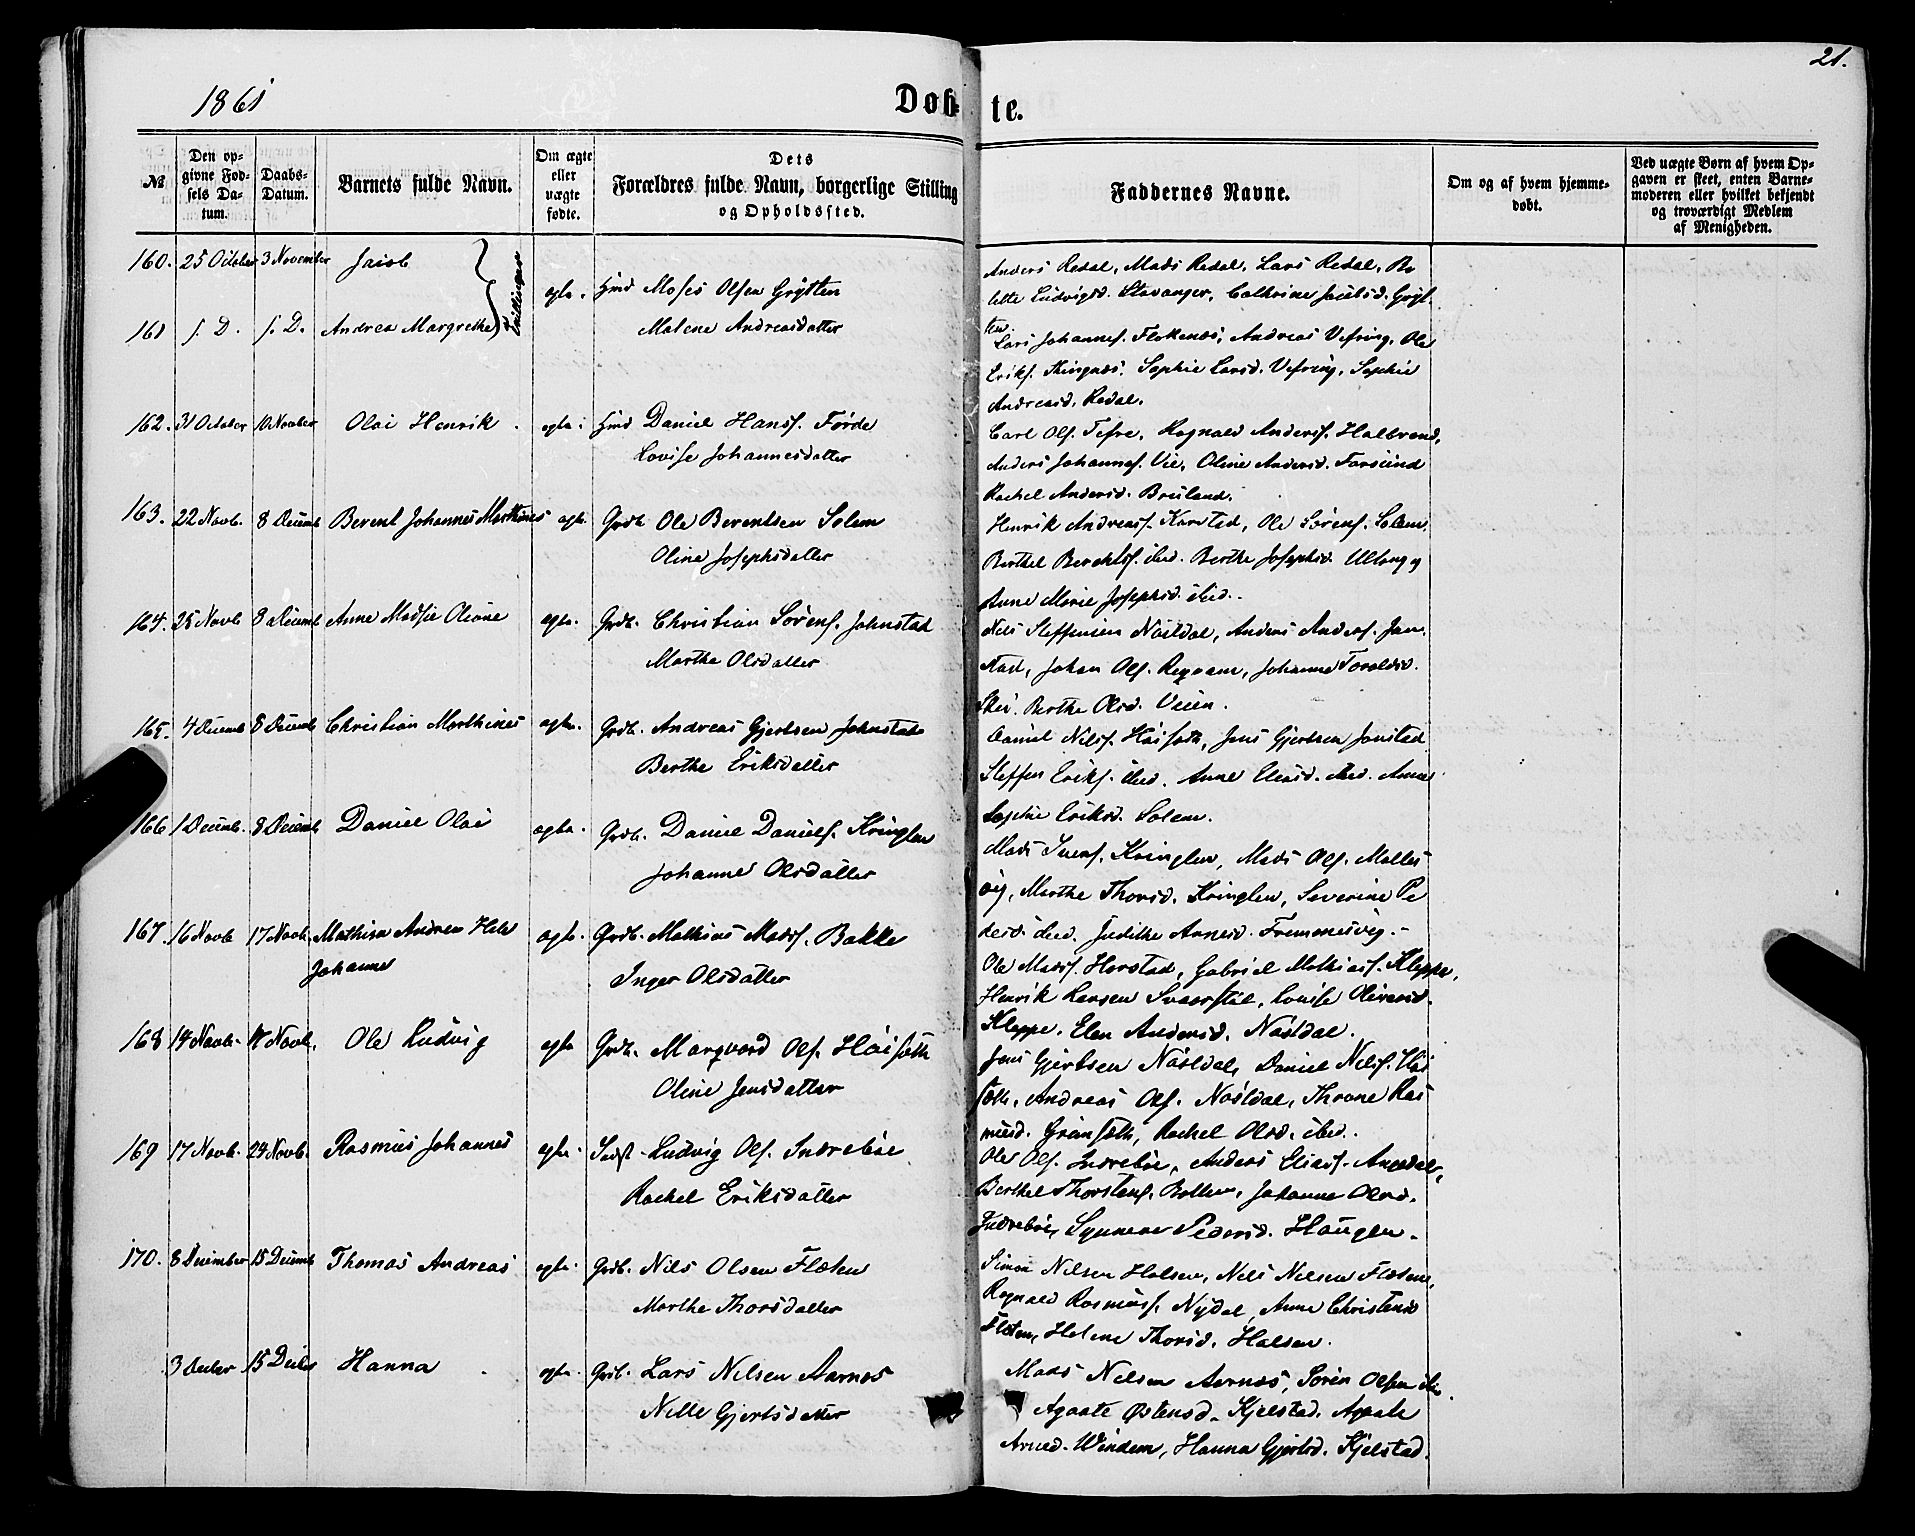 21.
1861
Døbte.
№
Den opgivne Fødsels Datum.
Daabs-Datum.
Barnets fulde Navn.
Om ægte eller uægte fødte.
Dets Forældres fulde Navn, borgerlige Stilling og Opholdssted.
Faddernes Navne.
Om og af hvem hjemmedøbt.
Ved uægte Børn af hvem Opgaven er skeet, enten Barnemoderen eller hvilket bekjendt og troværdigt Medlem af Menigheden.
160. 25 October 3 November Jacob
ægte. Hmd Moses Olsen Grytten
Malene Andreasdatter
161 s. D. s. D. Andrea Margrethe
Tvillinger
Anders Redal, Mads Redal, Lars Redal, Bo
lette Ludvigsd. Stavanger, Cathrine Jacobsd. Gryt
ten.
Lars Johannes. Flokenæs, Andreas Vefring, Ole
Eriks. Sophie Larsd. Vefring, Sophie
Andreasd. Redal.
162. 31 October 10 Novber Olai Henrik ægte Hmd Daniel Hanss. Førde
Lovise Johannesdatter
Carl Ols. Tefre, Rognald Anderss. Halbrend,
Anders Johanness. Vie, Oline Andersd. Farsund
Rachel Andersd. Bruland.
163. 22 Novb. 8 Decemb Berent Johannes Marthines ægte. Grdb. Ole Berentsen Solem
Oline Josephsdatter
Henrik Andreass. Karstad, Ole Sørens. Solem,
Berthel Berentss. ibid. Berthe Josephsd. Ullang
Anne Marie Josephsd. ibid.
164. 25 Novb 8 Decemb Anne Madsie Oleane ægte. Grdb. Christian Sørens. Johnstad
Marthe Olsdatter
Nils Steffensen Nåsldal, Anders Anders. Jon
stad, Johan Ols. Johanne Toraldsd.
Skei. Berthe Olsd. Veien.
165. 4 Decemb 8 Decemb Christian Marthines ægte. Grdb. Andreas Gjertsen Johnstad
Berthe Eriksdatter
Daniel Nilss. Høisæth, Jens Gjertsen Jonstad
Steffen Eriks. ibid. Anne Eliasd. ibid. Anne
Sophie Eriksd. Solem.
166 1 Decemb. 8 Decemb Daniel Olai ægte. Grdb. Daniel Daniels. Kringlen
Johanne Olsdatter
Mads Ivers. Kringlen, Mads Ols. Malles
vig, Marthe Thorsd. Kringlen, Severine Pe
dersd. ibid. Judithe Arnesd. Fremmesvig.
167. 16 Novb 17 Novb. Mathisa Andrea Hele
Johanne
ægte. Grdb. Mathias Madss. Bakke
Inger Olsdatter
Ole Madss. Horstad, Gabriel Mathiass. Kleppe,
Henrik Larsen Lovise
Kleppe, Elen Andersd. Nåsldal.
168 14 Novb. 17 Novb. Ole Ludvig ægte Grdb. Marqvard Ols. Høisæth
Oline Jensdatter
Jens Gjertsen Nåsldal, Daniel Nilss. Høi
sæth, Andreas Ols. Nåsldal, Throne Ras
musd. Grønsæth, Rachel Olsd. ibid.
169 17 Novb. 24 Novb. Rasmus Johannes ægte. Indst. Ludvig Ols. Indrebøe
Rachel Eriksdatter
Ole Ols. Indrebøe, Anders Eliass. Angedal,
Berthel Thorstens. Bolten, Johanne Olsd.
Indrebø, Synneve Pedersd. Haugen.
170. 8 December 15 Decemb Thomas Andreas ægte. Grdb. Nils Olsen Flæten
Marthe Thorsdatter
Simon Nilsen Halsen, Nils Nilsen Flæten,
Rognald Rasmuss. Nydal, Anne Christensd
Flæten, Helene Thorsd. Halsen.
3 Decber 15 Decber Hanna ægte. Grdb. Lars Nilsen Aarnæs
Nille Gjertsdatter
Mads Nilsen Aarnæs, Søren Olsen ibid.
Agaate Østensd. Kjelstad. Agaate
Arnesd. Winden, Hanna Gjertsd. Kjelstad.